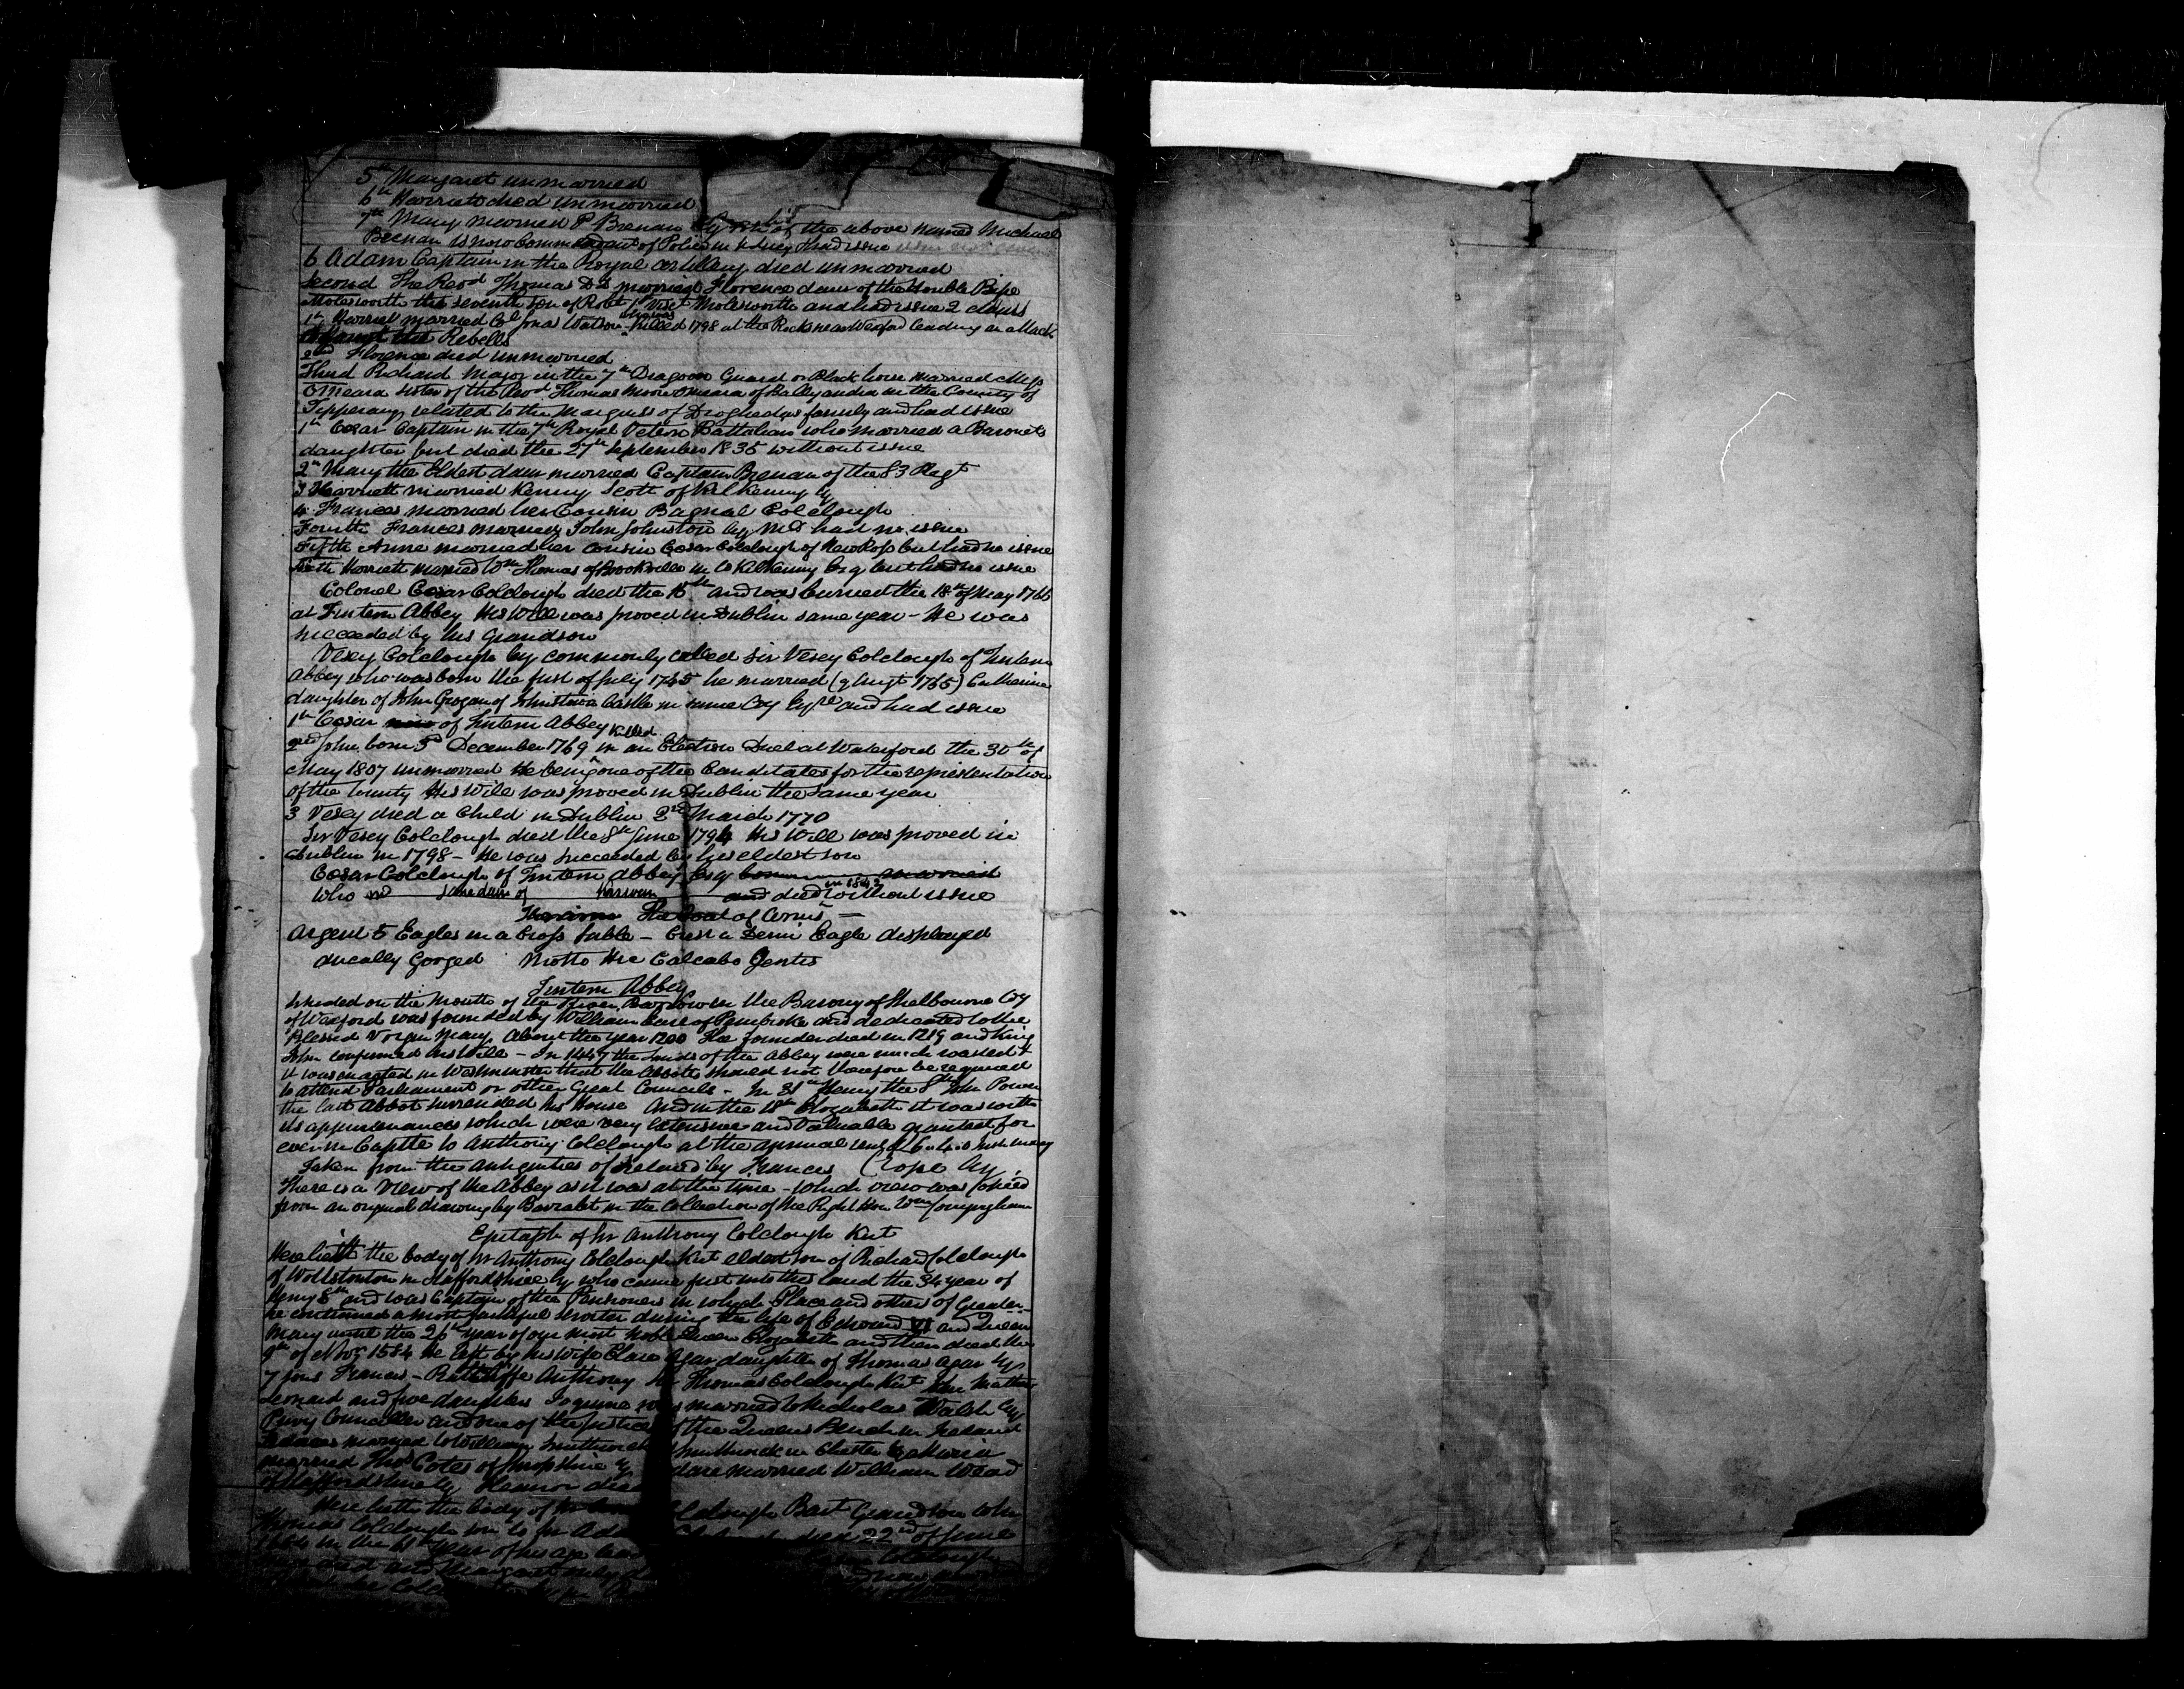 5th Margaret unmarried
6th Harriet died unmarried
7th Mary married P Brenan Esqr of the above named Michael
Brenan is now Commandant of Police in Sidney & had issue
6 Adam Captain in the Royal Artillery died unmarried
Second The Revd Thomas DD married Florence daur of the Honble Bispe
Molesworth the seventh son of Robt 1st Visct Molesworth and had issue 2 daurs
1st Harriet married Col Jonas Watson who was killed 1798 at the Rocks near Wexford leading an attack
against the Rebells
2nd Florence died unmarried
Third Richard Major in the 7th Dragoon Guard or Black horse married Miss
OMeara sister of the Revd Thomas Moore Omeara of Ballyandra in the County of
Tipperary related to the Marquis of Droghedas family and had issue
1st Cesar Captain in the 7th Royal Vetern Battalion who married a Baronets
daughter but died the 27th September 1835 without issue
2nd Mary the Eldest daur married Captain Brenan of the 83 Regt
3 Harriett married Kenny Scott of Kilkenny Esq
4 Frances married her Cousin Bagnal Colclough
Fourth Frances married John Johnston Esq MD had no issue
Fifth Anne married her cousin Cesar Colclough of New Ross but had no issue
Harriett married Wm Thomas of Brookville in Co Kilkenny Esq but had no issue
Colonel Cesar Colclough died the 15th and was burried the 18th of May 1766
at Tintern Abbey His Will was proved in Dublin same year - He was
succeeded by his Grandson
Vesey Colclough Esq commonly called Sir Vesey Colclough of Tintern
Abbey who was born the first of July 1745 he married (9 Augt 1765) Catherine
daughter of John Grogan of Johnstown Castle in same Coy Esqre and had issue
1st Cesar now of Tintern Abbey
2nd John born 5 December 1769 killed in an Election Duel at Waterford the 30th of
May 1807 unmarried He being one of the Canditates for the representation
of the County His Will was proved in Dublin the same year
3 Vesey died a Child in Dublin 2nd March 1770
Sir Vesey Colclough died the 8th June 1794 His Will was proved in
Dublin in 1798 - He was succeeded by his eldest son
Cesar Colclough of Tintern Abbey Esq born married
who md Jane daur of Kirwan and died in 1842 without issue
The Coat of Arms -
Argent 5 Eagles in a Cross Sable - Crest a Demi Eagle displayed
ducally Gorged Motto His Calcabo Gentes
Tintern Abbey
Situated on the Mouth of the River Barrow in the Barony of Shelbourne Coy
of Wexford was founded by William Earl of Pembroke and dedicated to the
Blessed Virgin Mary About the year 1200 The founder died in 1219 and King
John confirmed his Will - In 1447 the lands of the Abbey were much wasted &
it was enacted in Westminster that the Abbotts should not therefore be required
to attend Parliament or other Great Councils - In 31st Henry the 8th John Power
the last Abbot surrended his House And in the 18th Elizabeth it was with
its appurtenances which were very Extensive and Valuable granted for
ever in Capite to Anthony Colclough at the annual rent of £6.4.0 Irish money
Taken from the Antiquities of Ireland by Frances Grose Esq
There is a View of the Abbey as it was at the time - which view was Copied
from an original drawing by Barralet in the Collection of the Right Hon Wm Conyngham
Epitaph of Sr Anthony Colclough Knt
Here lieth the body of Sr Anthony Colclough Knt eldest son of Richard Colclough
of Wollstonton in Staffordshire Esq who came first into this Land the 34 year of
Henry 8th and was Captain of the Pensioners in which Place and others of Greater
he continued a most faithful Servitor during the life of Edward VI and Queen
Mary until the 26th year of our most noble Queen Elizabeth and then died the
9th of Novr 1584 He left by his wife Clare Agar daughter of Thomas Agar Esqr
7 sons Francis - Ratcliffe Anthony Sr Thomas Colclough Knt John Matthew
Leonard and five daughters Jaquine was married to Nicholas Walsh Esq
Privy Councillor and one of the Justices of the Queens Bench in Ireland
Frances married William Smithwick Smithwick in Chester Esq Maria
married Thos Cotes of Shropshire Esq Clare married William Wead
of Staffordshire Esq Eleanor died
Here lieth the body of Colclough Bart Grandson to Sr
Thomas Colclough son to Sr Adam died 22nd of June
in the 61st year of his age
Margaret only